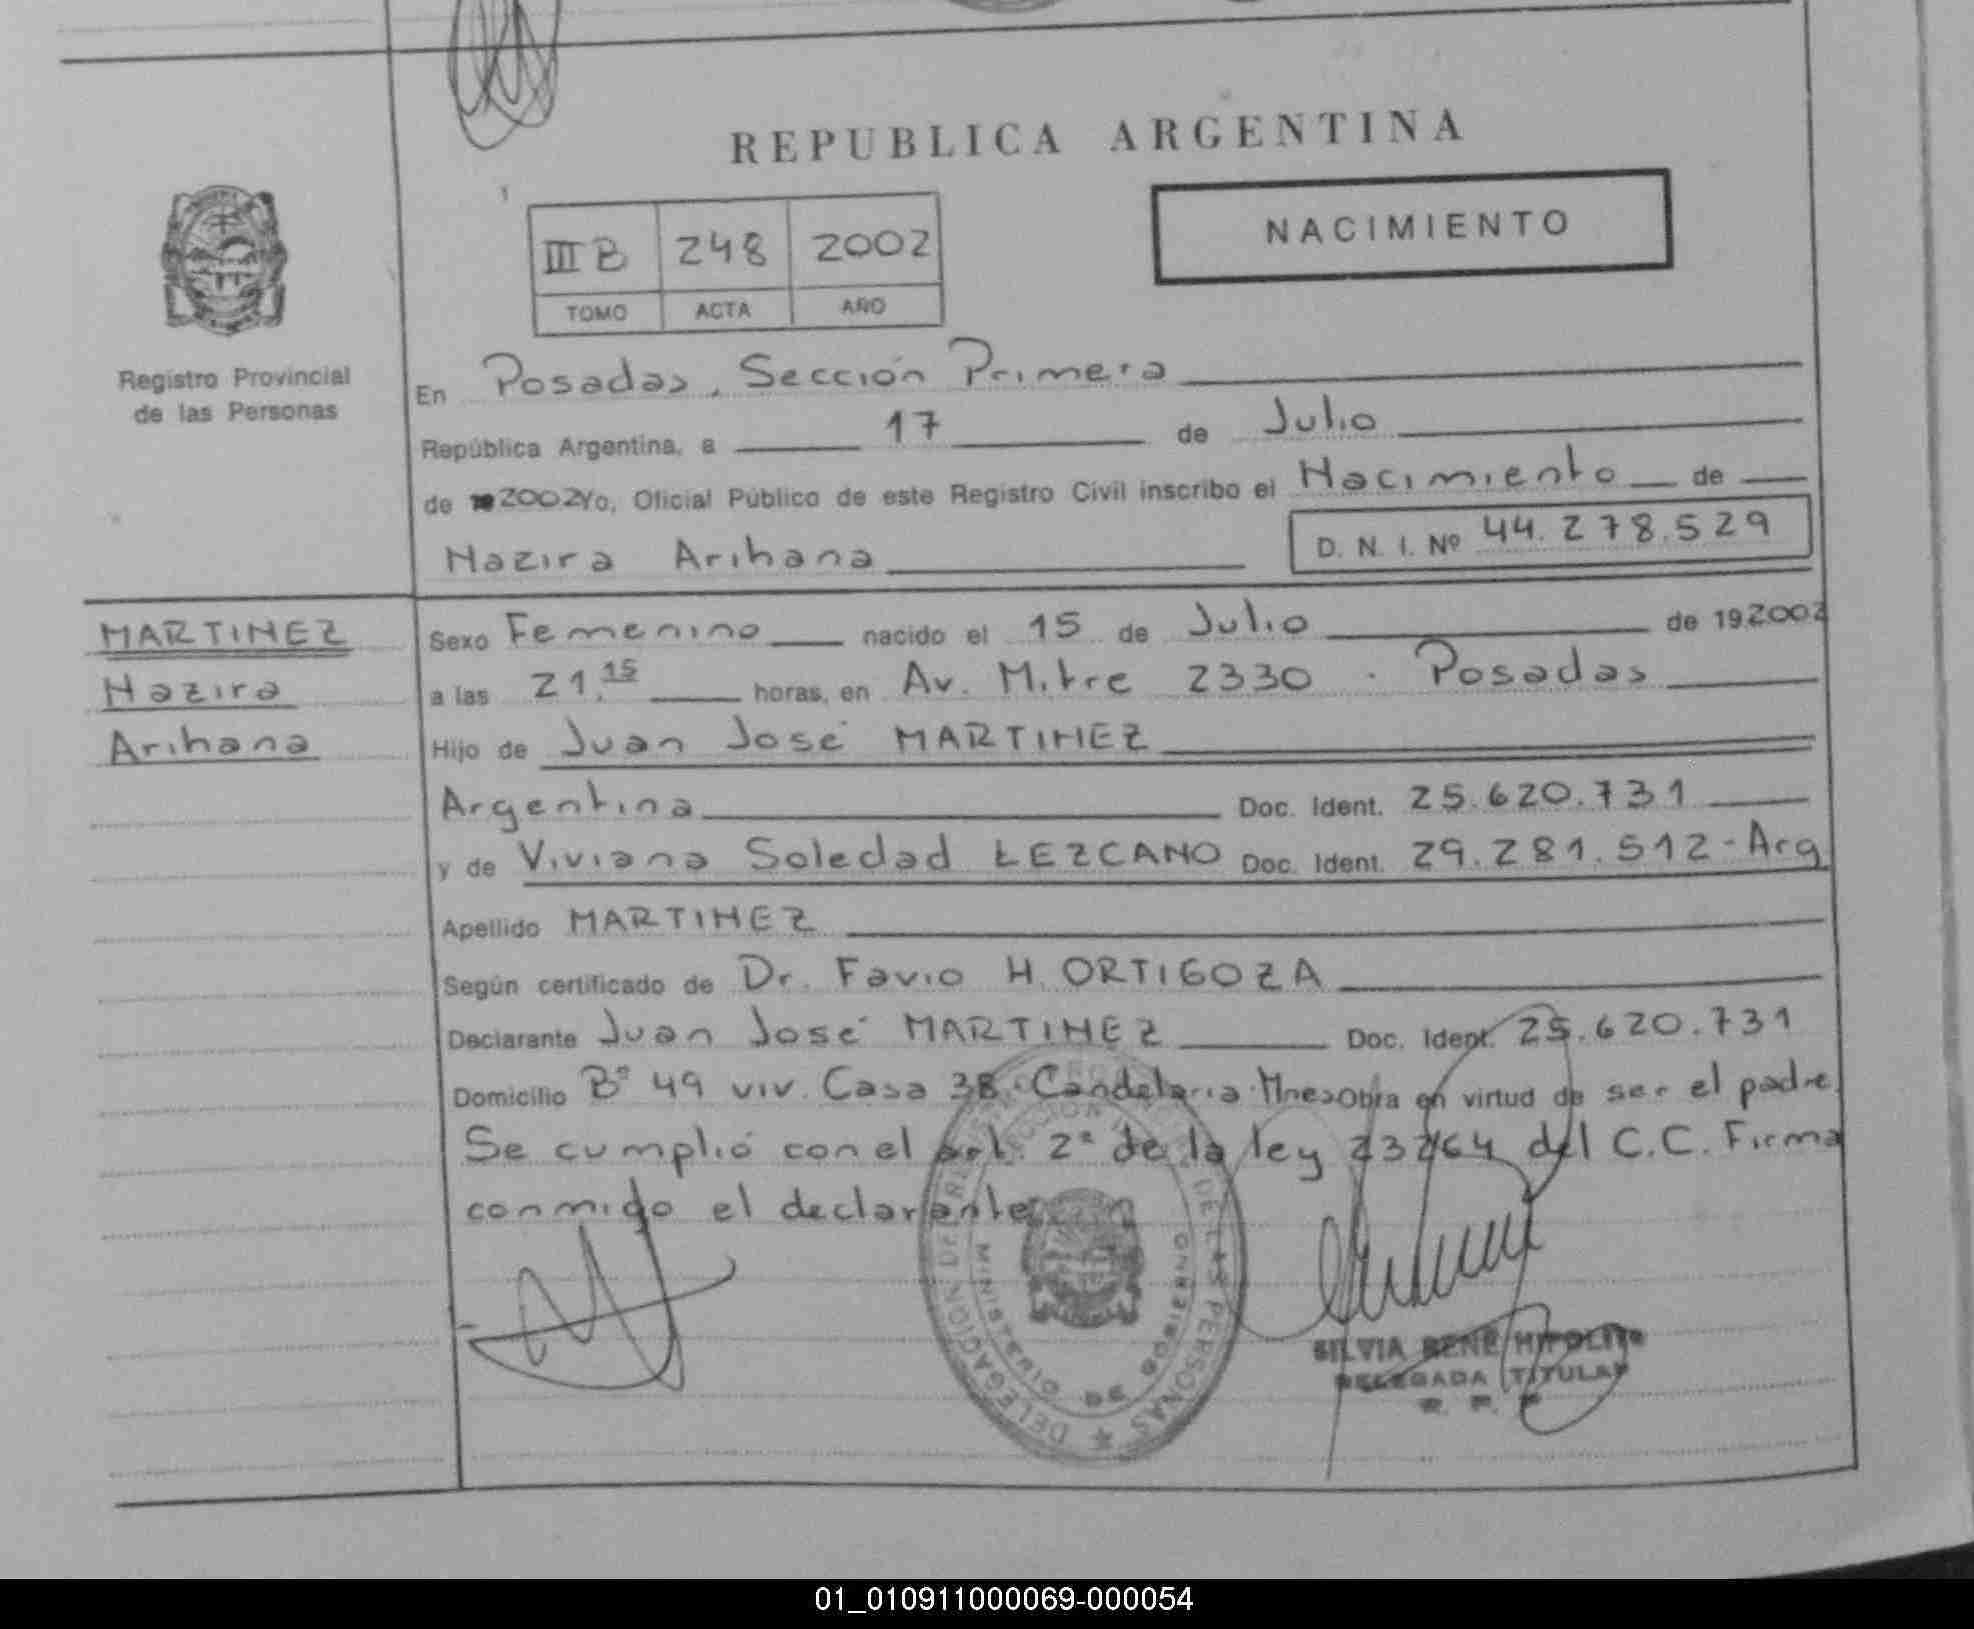 REPUBLICA ARGENTINA
NACIMIENTO
III B 248 2002
TOMO ACTA AÑO
Registro Provincial
de las Personas
En Posadas, Sección Primera
República Argentina, a 17 de Julio
de 2002 Yo, Oficial Público de este Registro Civil inscribo el Nacimiento de
Nazira Arihana D. N. I. Nº 44.278.529
MARTINEZ
Nazira
Arihana
Sexo Femenino nacido el 15 de Julio de 19 2002
a las 21.15 horas, en Av. Mitre 2330 - Posadas
Hijo de Juan José MARTINEZ
Argentina Doc. Ident. 25.620.731
y de Viviana Soledad LEZCANO Doc. Ident. 29.281.512-Arg
Apellido MARTINEZ
Según certificado de Dr. Favio H. ORTIGOZA
Declarante Juan José MARTINEZ Doc. Ident. 25.620.731
Domicilio Bº 49 viv. Casa 38. Candelaria Mnes Obra en virtud de ser el padre.
Se cumplió con el art. 2º de la ley 23264 del C.C. Firma
conmigo el declarante
DELEGACION DE LAS PERSONAS
MINISTERIO DE GOBIERNO
SILVIA RENE HIPOLITO
DELEGADA TITULAR
R. P. P.
01_010911000069-000054